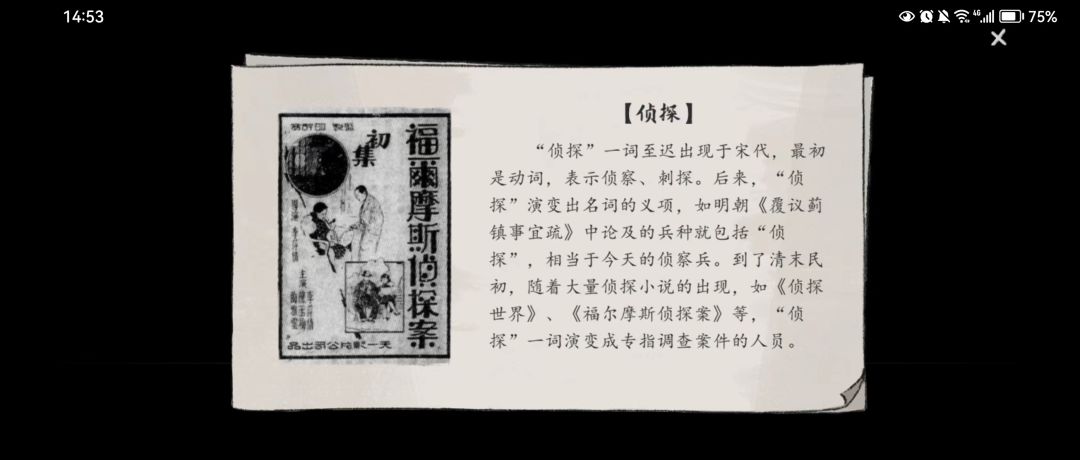 14:53
4G
75%
【侦探】
“侦探”一词至迟出现于宋代，最初
是动词，表示侦察、刺探。后来，“侦
探”演变出名词的义项，如明朝《覆议蓟
镇事宜疏》中论及的兵种就包括“侦
探”，相当于今天的侦察兵。到了清末民
初，随着大量侦探小说的出现，如《侦探
世界》、《福尔摩斯侦探案》等，“侦
探”一词演变成专指调查案件的人员。
福爾摩斯偵探案
初集
主演
品出司公片影一天